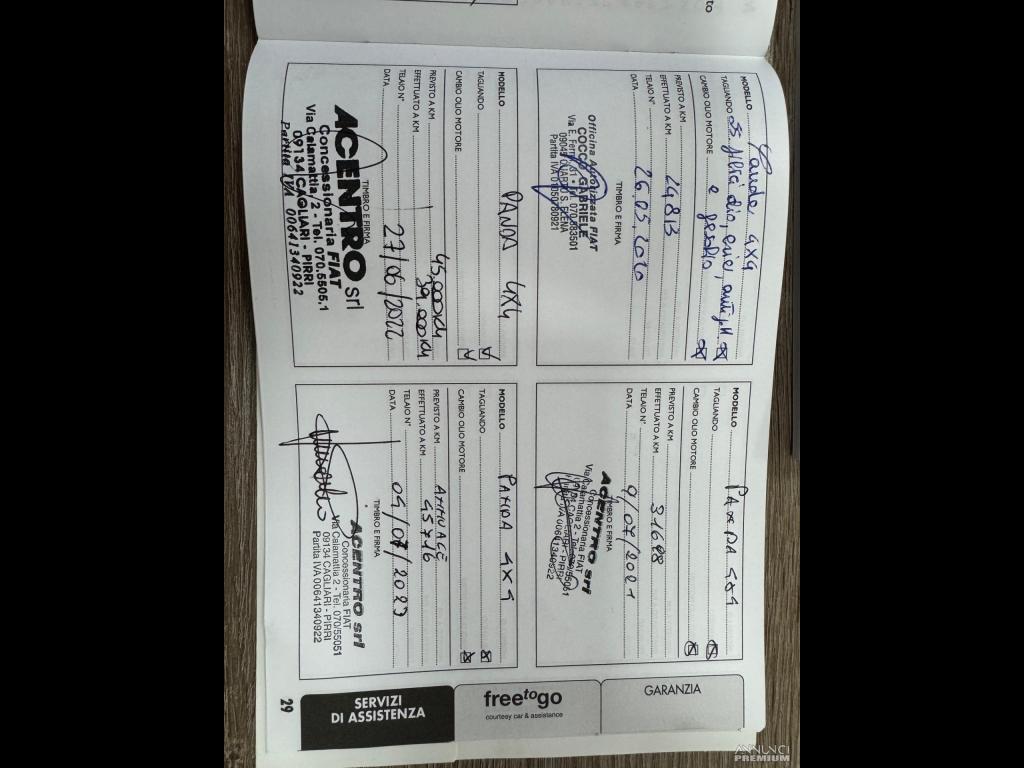 MODELLO Panda 4x4
TAGLIANDO SS filtri olio, aria, antip.
CAMBIO OLIO MOTORE e gasolio
PREVISTO A KM
EFFETTUATO A KM 24813
TELAIO N°
DATA 26.05.2020
TIMBRO E FIRMA
Officina Autorizzata FIAT
COCCO GABRIELE
Via E. Fermi, 01 - Tel. 070.883501
QUARTU S. ELENA
Partita IVA
MODELLO PANDA 4X4
TAGLIANDO
CAMBIO OLIO MOTORE
PREVISTO A KM
EFFETTUATO A KM 31698
TELAIO N°
DATA 9/07/2021
TIMBRO E FIRMA
ACENTRO srl
Concessionaria FIAT
Via Calamattia 2 - Tel. 070/55051
09134 CAGLIARI - PIRRI
Partita IVA 00641340922
MODELLO PANDA 4X4
TAGLIANDO
CAMBIO OLIO MOTORE
PREVISTO A KM 45.000KM
EFFETTUATO A KM 39.000KM
TELAIO N°
DATA 27/06/2022
TIMBRO E FIRMA
ACENTRO srl
Concessionaria FIAT
Via Calamattia/2 - Tel. 070.5505.1
09134 CAGLIARI - PIRRI
Partita IVA 00641340922
MODELLO PANDA 4X4
TAGLIANDO
CAMBIO OLIO MOTORE
PREVISTO A KM ANNUALE
EFFETTUATO A KM 45716
TELAIO N°
DATA 04/07/2023
TIMBRO E FIRMA
ACENTRO srl
Concessionaria FIAT
Via Calamattia 2 - Tel. 070/55051
09134 CAGLIARI - PIRRI
Partita IVA 00641340922
SERVIZI
DI ASSISTENZA
freetogo
courtesy car & assistance
GARANZIA
29
ANNUNCI
PREMIUM